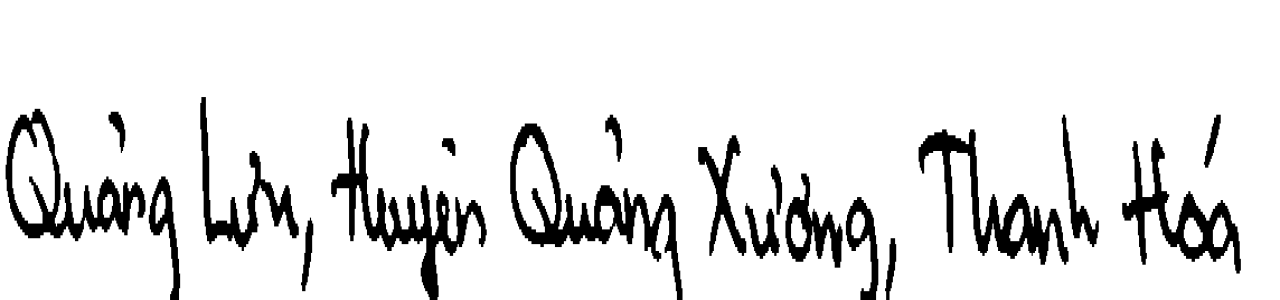 Quảng Lưu, Huyện Quảng Xương, Thanh Hóa